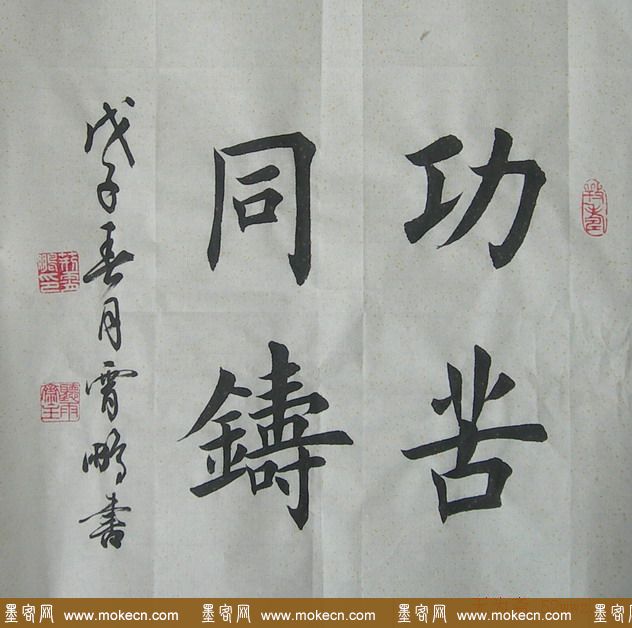 功苦
同鑄
戊子春月霄鵬書
聽雨
齋主
墨客网 www.mokecn.com 墨客网 www.mokecn.com 墨客网 www.mokecn.com